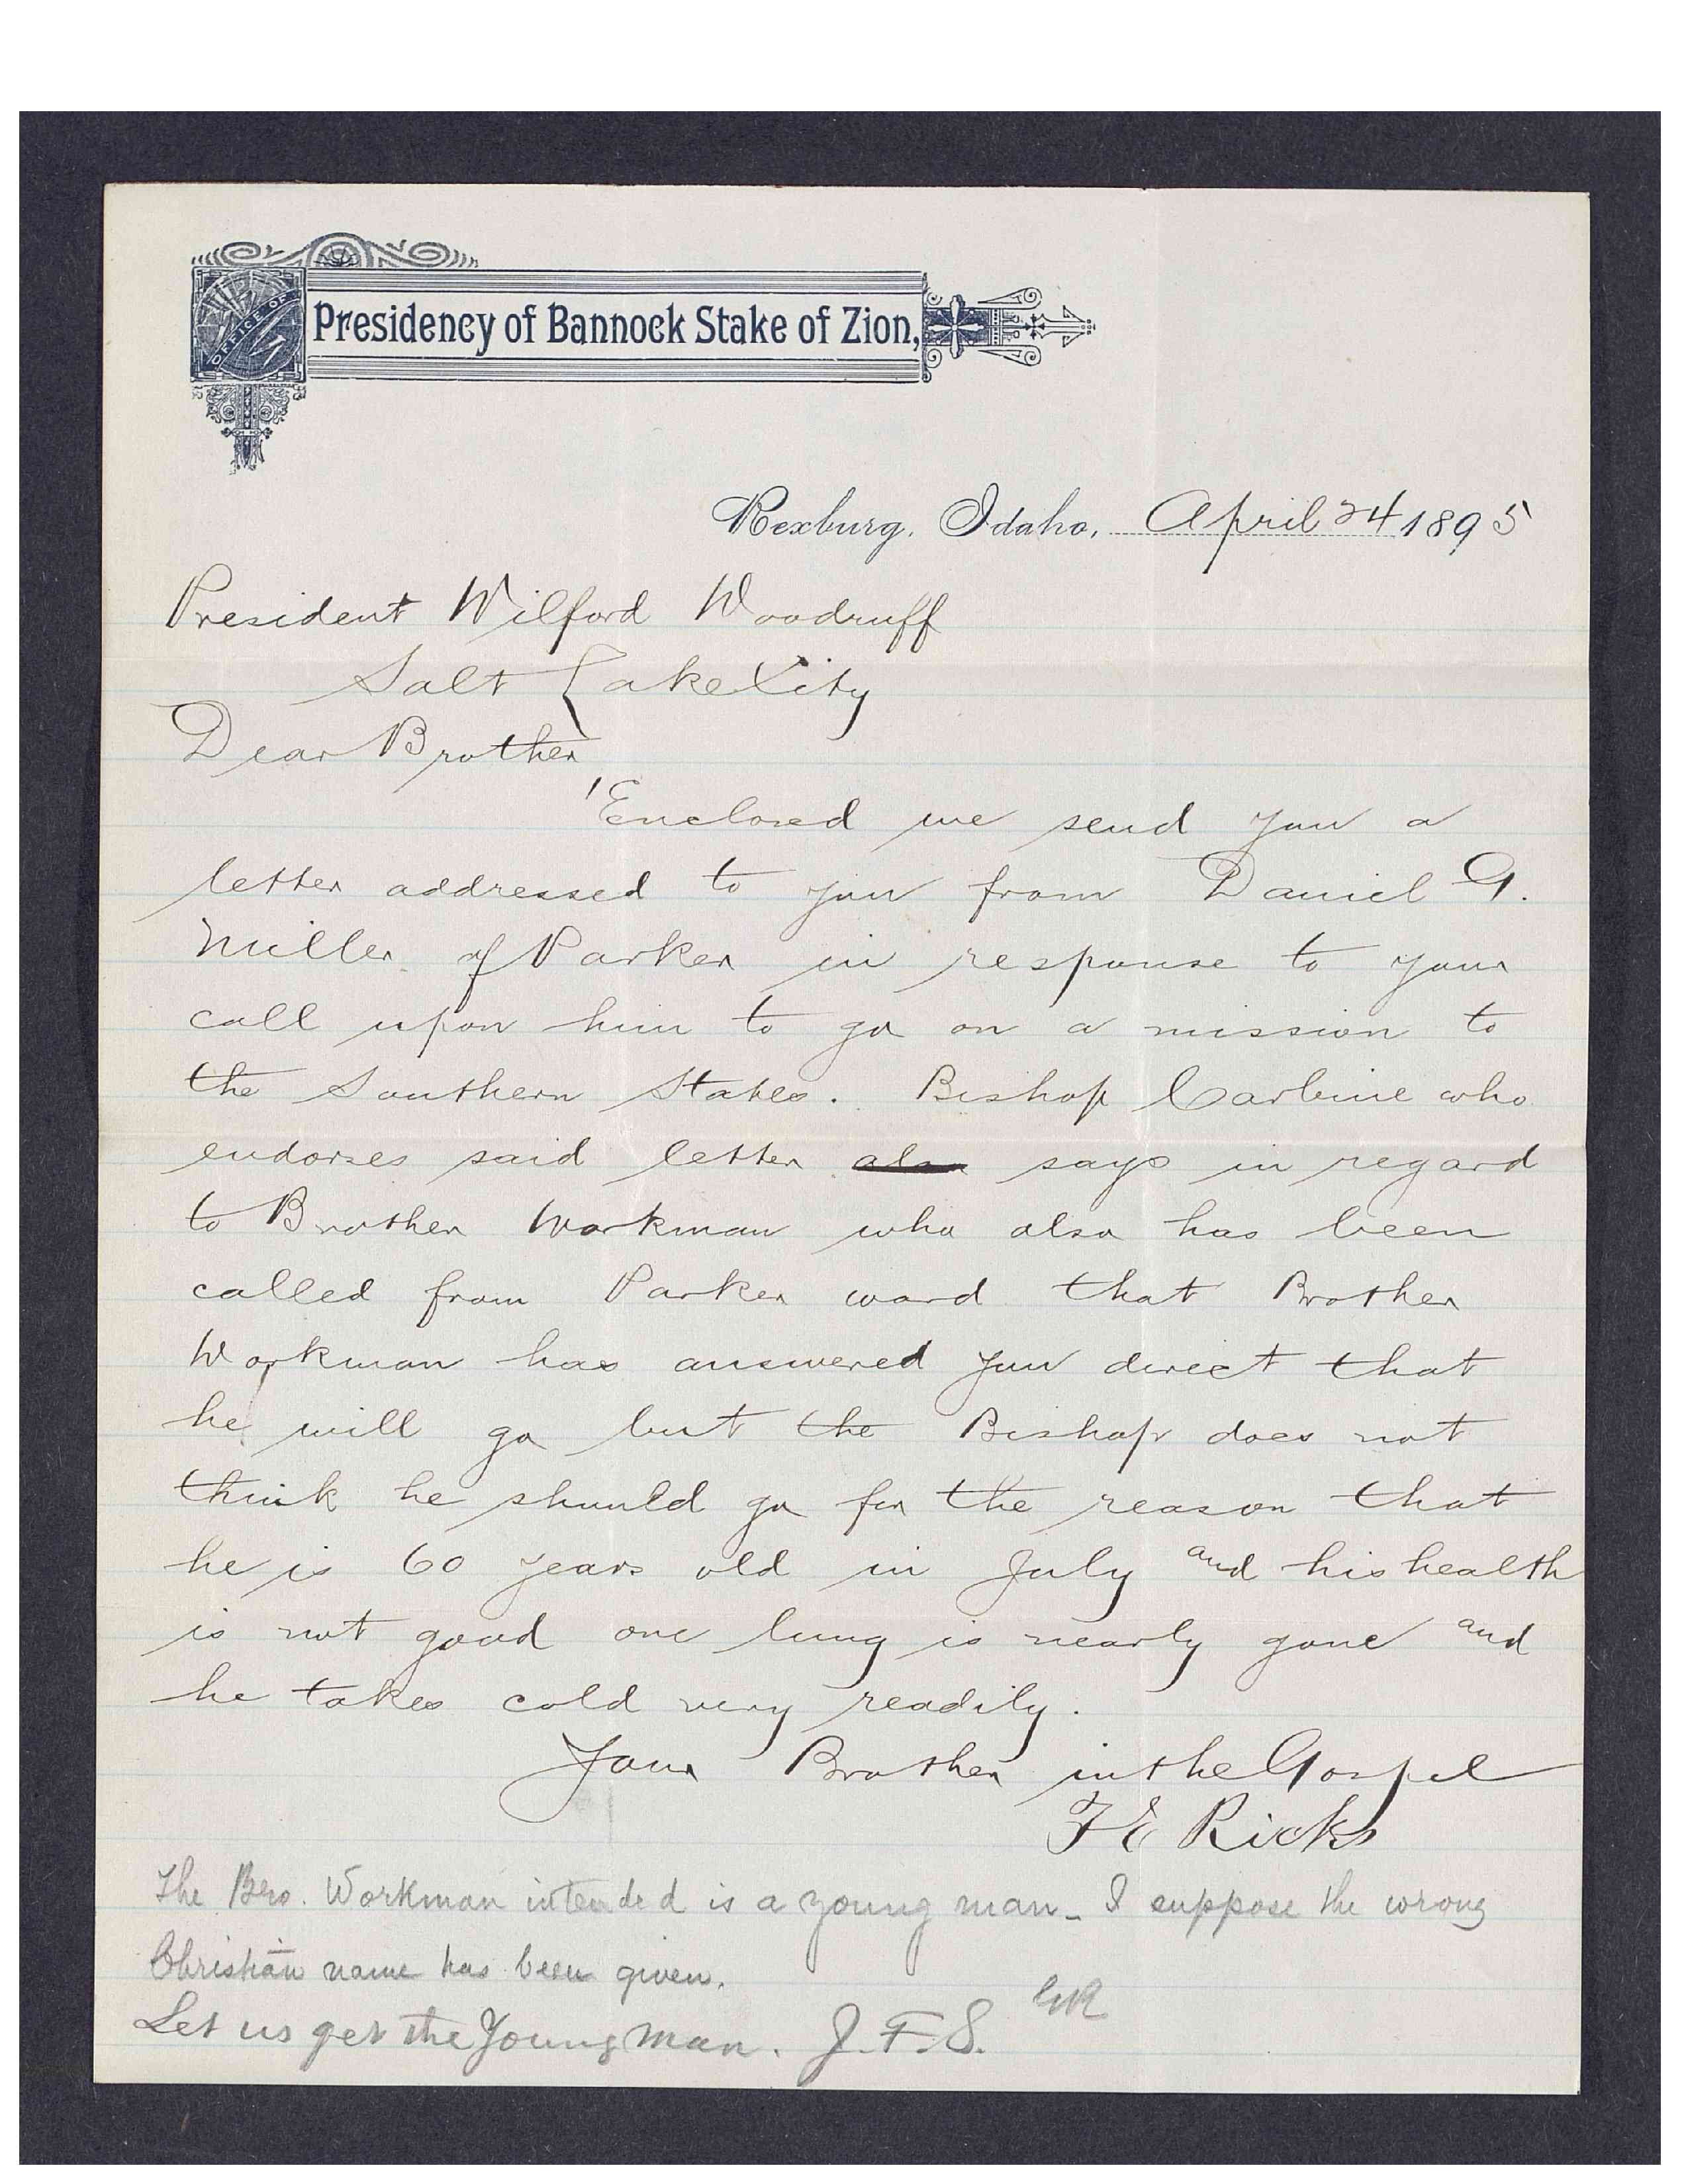 OFFICE OF
Presidency of Bannock Stake of Zion,
Rexburg, Idaho, April 24 1895
President Wilford Woodruff
Salt Lake City
Dear Brother
Enclosed we send you a
letter addressed to you from Daniel G.
Miller of Parker in response to your
call upon him to go on a mission to
the Southern States. Bishop Carbine who
endorses said letter also says in regard
to Brother Workman who also has been
called from Parker ward that Brother
Workman has answered you direct that
he will go but the Bishop does not
think he should go for the reason that
he is 60 years old in July and his health
is not good one lung is nearly gone and
he takes cold very readily.
Your Brother in the Gospel
F E Ricks
The Bro. Workman intended is a young man - I suppose the wrong
Christian name has been given.
GR
Let us get the Young man. J. F. S.